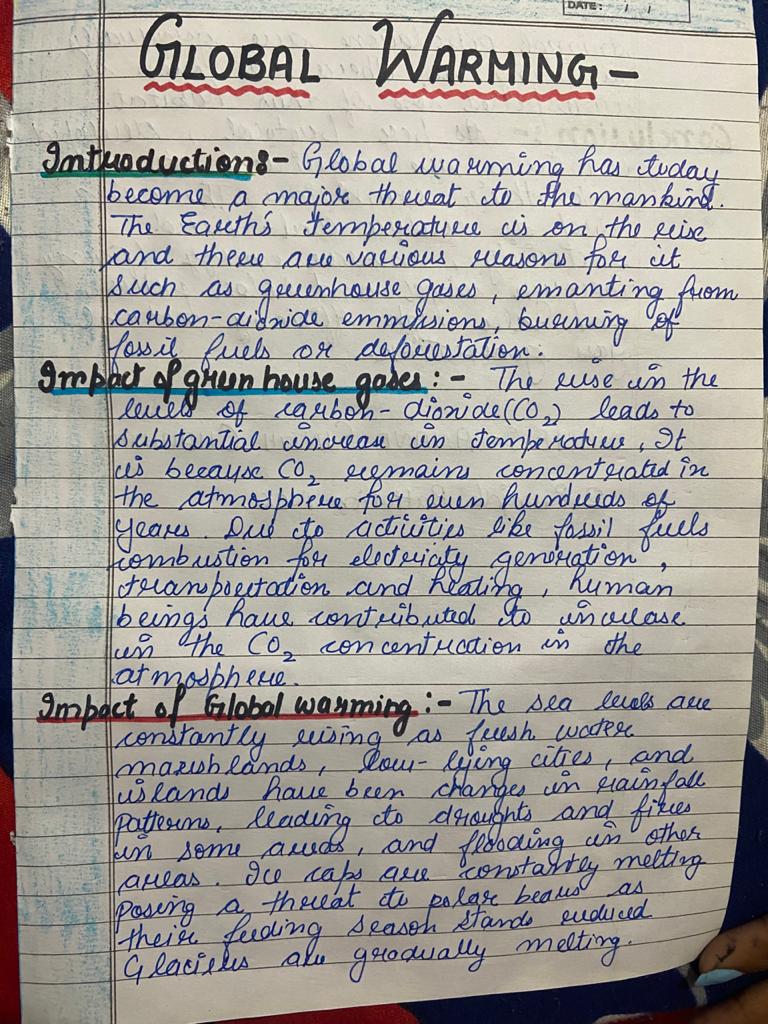 DATE: / /
GLOBAL WARMING-
Introduction:- Global warming has today
become a major threat to the mankind.
The Earth's temperature is on the rise
and there are various reasons for it
such as greenhouse gases, emanting from
carbon-dioxide emmisions, burning of
fossil fuels or deforestation.
Impact of green house gases:- The rise in the
levels of carbon-dioxide(CO₂) leads to
substantial increase in temperature, It
is because CO₂ remains concentrated in
the atmosphere for even hundreds of
years. Due to activities like fossil fuels
combustion for electricity generation,
transportation and heating, human
beings have contributed to increase
in the CO₂ concentration in the
atmosphere.
Impact of Global warming:- The sea levels are
constantly rising as fresh water
marshlands, low-lying cities, and
islands have been changes in rainfall
patterns, leading to droughts and fires
in some areas, and flooding in other
areas. Ice caps are constantly melting
posing a threat to polar bears as
their feeding season stands reduced
Glaciers are gradually melting.